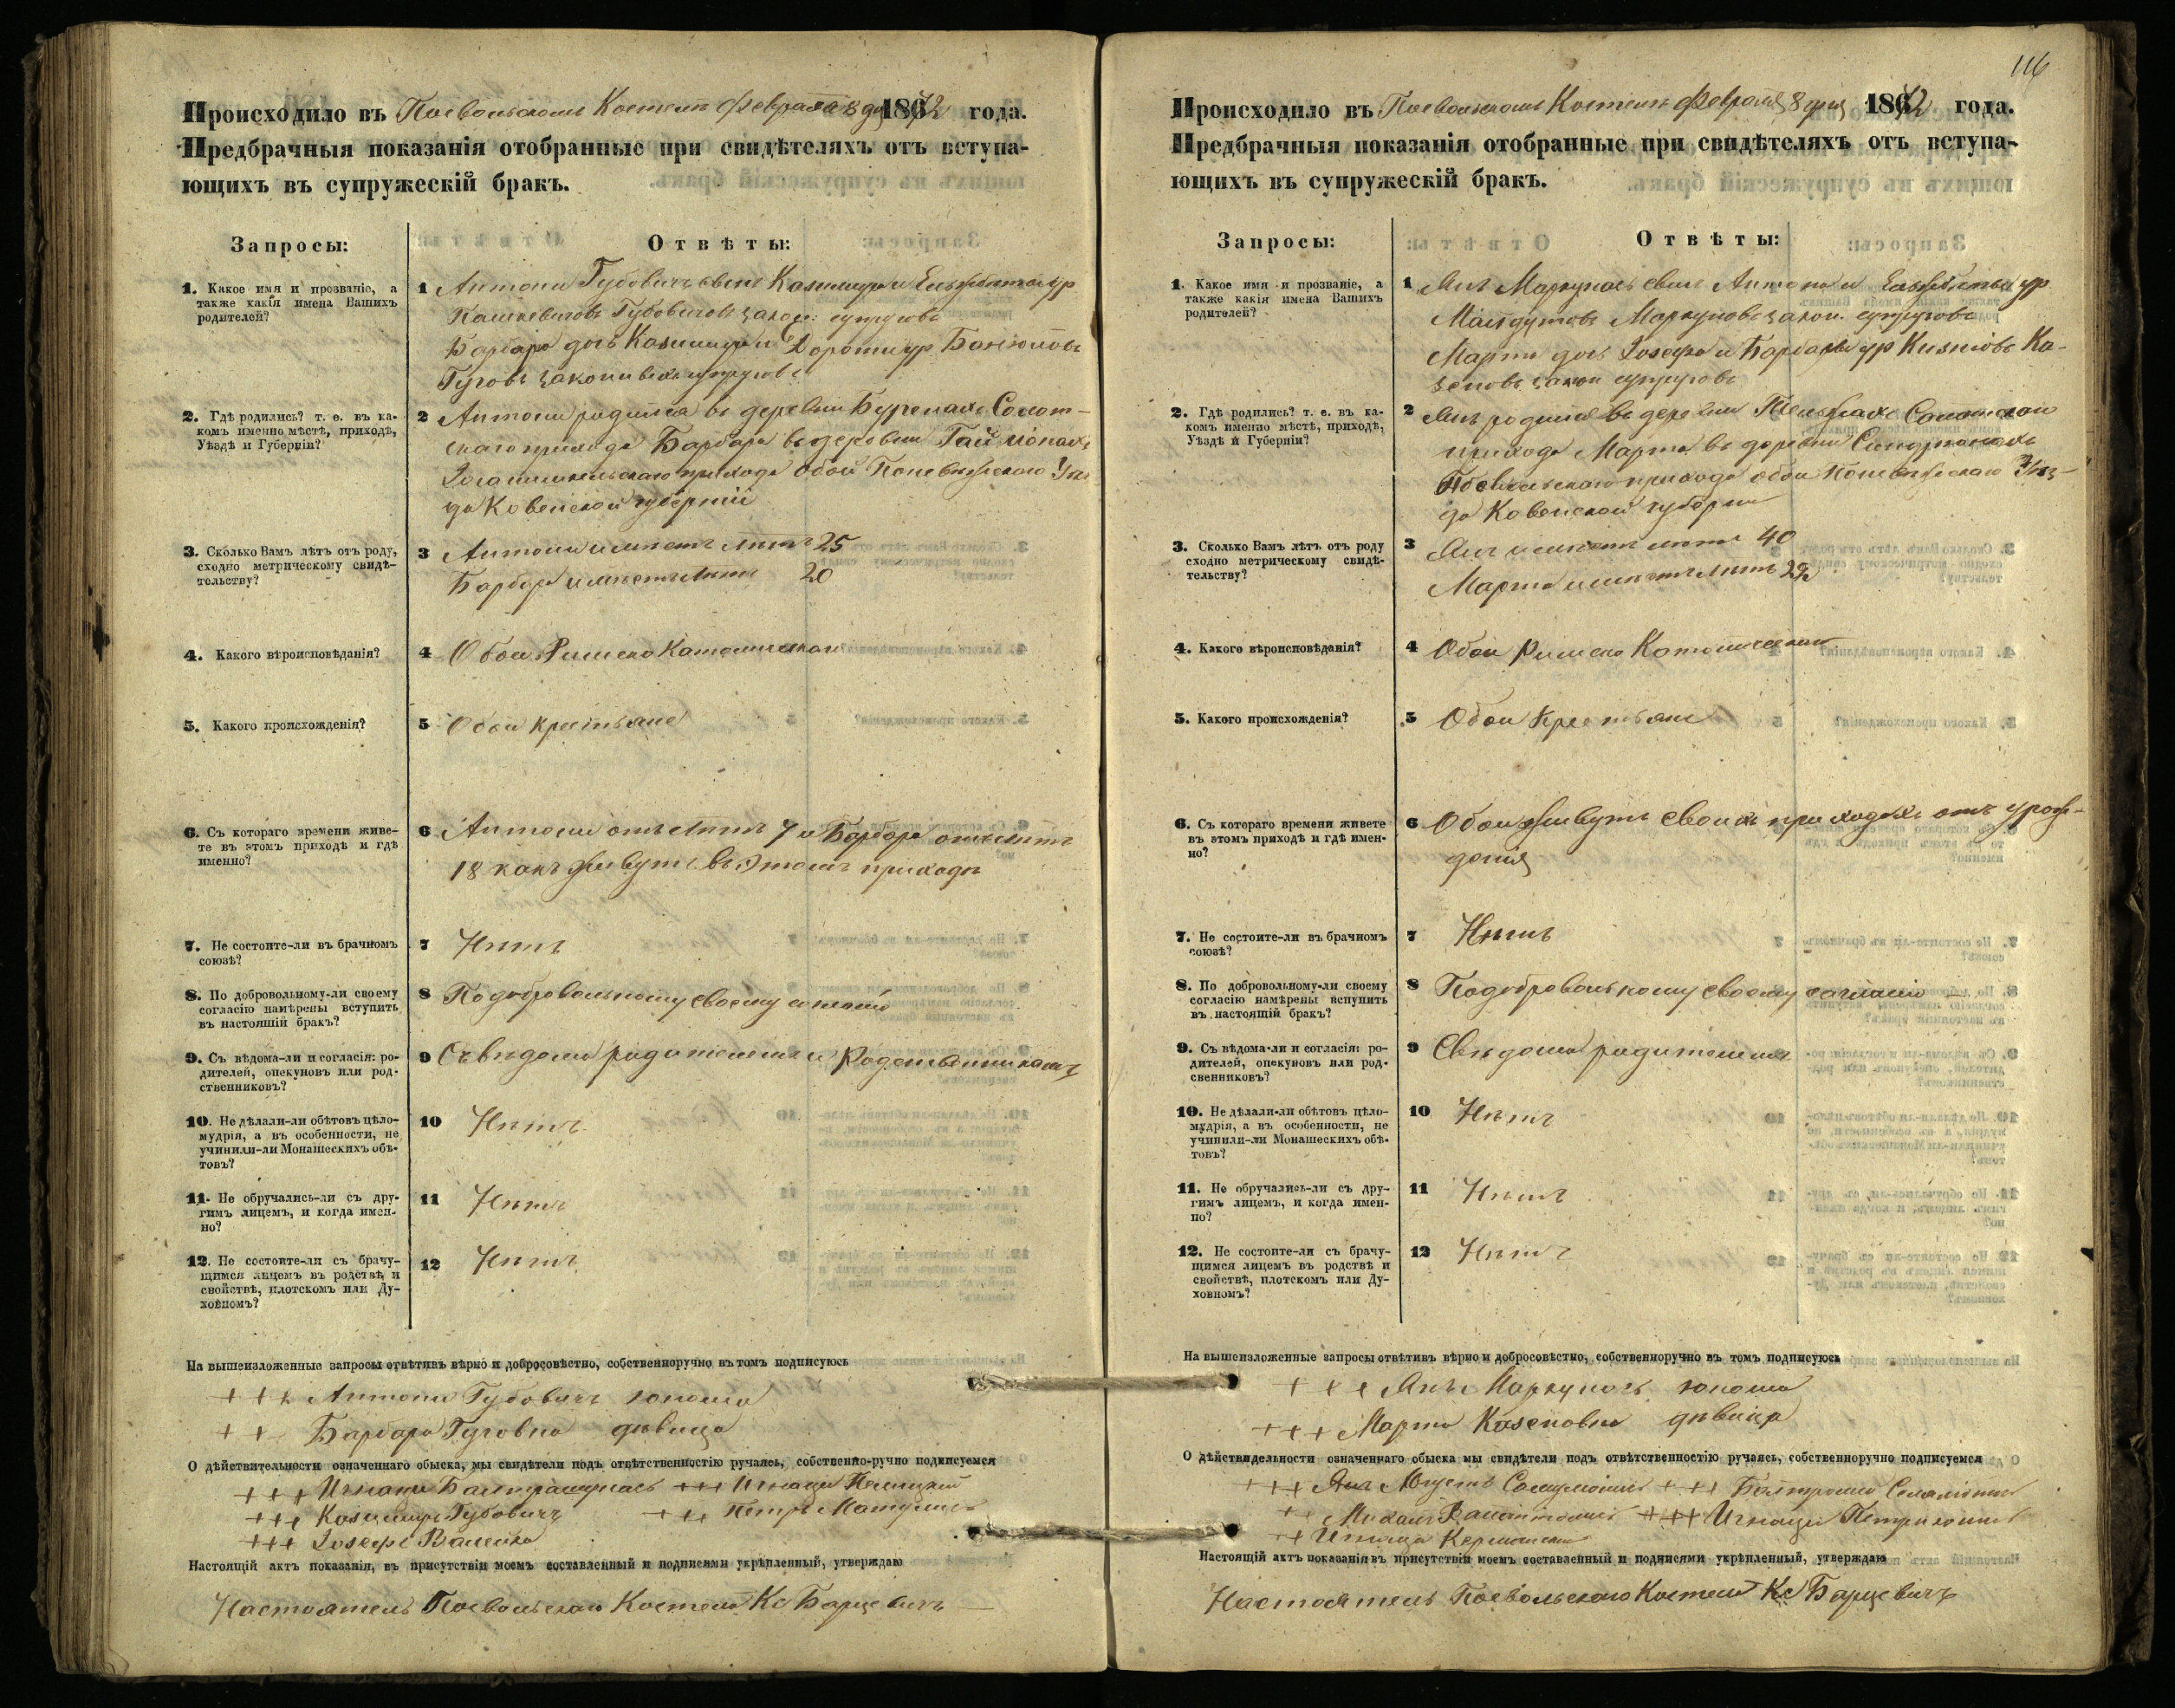 Происходило въ Поевольскомъ Костелѣ февраля 8 дня 1872 года.
Предбрачныя показанія отобранные при свидѣтеляхъ отъ вступа-
ющихъ въ супружескій бракъ.
Запросы:
Отвѣты:
1. Какое имя и прозваніе, а
также какія имена Вашихъ
родителей?
1 Антони Губовичъ сынъ Казимира и Ельжбеты ур
Губовичовъ закон: супруговъ
Барбара дочь Казимира и Дороты ур
Гуговъ законныхъ супруговъ
2. Гдѣ родились? т. е. въ ка-
комъ именно мѣстѣ, приходѣ,
Уѣздѣ и Губерніи?
2 Антони родился въ деревни Солот-
скаго прихода Барбара въ деревни
прихода обои Поневѣжскаго Уѣз-
да Ковенской губерніи
3. Сколько Вамъ лѣтъ отъ роду,
сходно метрическому свидѣ-
тельству?
3 Антони имѣетъ лѣтъ 25
Барбара имѣетъ лѣтъ 20
4. Какого вѣроисповѣданія?
4 Обои Римско Католическаго
5. Какого происхожденія?
5 Обои крестьяне
6. Съ котораго времени живе-
те въ этомъ приходѣ и гдѣ
именно?
6 Антони отъ лѣтъ 7 и Барбара отъ лѣтъ
18 какъ живутъ въ этомъ приходѣ
7. Не состоите-ли въ брачномъ
союзѣ?
7 Нѣтъ
8. По добровольному-ли своему
согласію намѣрены вступить
въ настоящій бракъ?
8 По добровольному своему согласію
9. Съ вѣдома-ли и согласія: ро-
дителей, опекуновъ или род-
ственниковъ?
9 Съ вѣдома родителей и Родственниковъ
10. Не дѣлали-ли обѣтовъ цѣло-
мудрія, а въ особенности, не
учинили-ли Монашескихъ обѣ-
товъ?
10 Нѣтъ
11. Не обручались-ли съ дру-
гимъ лицемъ, и когда имен-
но?
11 Нѣтъ
12. Не состоите-ли съ брачу-
щимся лицемъ въ родствѣ и
свойствѣ, плотскомъ или Ду-
ховномъ?
12 Нѣтъ
На вышеизложенные запросы отвѣтивъ вѣрно и добросовѣстно, собственноручно въ томъ подписуюсь
+ + + Антони Губовичъ юноша
+ + Барбара Гуговна дѣвица
О дѣйствительности означеннаго обыска, мы свидѣтели подъ отвѣтственностію ручаясь, собственно-ручно подписуемся
+++ Игнаци +++ Игнаци
+++ Казимиръ Губовичъ +++ Петръ Матулисъ
+++ Іосефъ Валейко
Настоящій актъ показанія, въ присутствіи моемъ составленный и подписями укрѣпленный, утверждаю
Настоятель Поевольскаго Костела Кс Барцевичъ
116
Происходило въ Поевольскомъ Костелѣ февраля 8 дня 1872 года.
Предбрачныя показанія отобранные при свидѣтеляхъ отъ вступа-
ющихъ въ супружескій бракъ.
Запросы:
Отвѣты:
1. Какое имя и прозваніе, а
также какія имена Вашихъ
родителей?
1 Янъ Маркунасъ сынъ Антона и Ельжбеты ур
Маркуновъ закон. супруговъ
Марта дочь Іосефа и Барбары ур Ка-
зеновъ закон супруговъ
2. Гдѣ родились? т. е. въ ка-
комъ именно мѣстѣ, приходѣ,
Уѣздѣ и Губерніи?
2 Янъ родился въ деревни Солотскаго
прихода Марта въ деревни
Поевольскаго прихода обои Поневѣжскаго Уѣз-
да Ковенской губерни
3. Сколько Вамъ лѣтъ отъ роду
сходно метрическому свидѣ-
тельству?
3 Янъ имѣетъ лѣтъ 40
Марта имѣетъ лѣтъ 22
4. Какого вѣроисповѣданія?
4 Обои Римско Католическаго
5. Какого происхожденія?
5 Обои Крестьяне
6. Съ котораго времени живете
въ этомъ приходѣ и гдѣ имен-
но?
6 Обои живутъ своихъ приходахъ отъ урож-
денія
7. Не состоите-ли въ брачномъ
союзѣ?
7 Нѣтъ
8. По добровольному-ли своему
согласію намѣрены вспупить
въ настоящій бракъ?
8 По добровольному своему согласію
9. Съ вѣдома-ли и согласія: ро-
дителей, опекуновъ или род-
свенниковъ?
9 Свѣдома родителей
10. Не дѣлали-ли обѣтовъ цѣло-
мудрія, а въ особенности, не
учинили-ли Монашескихъ обѣ-
товъ?
10 Нѣтъ
11. Не обручались-ли съ дру-
гимъ лицемъ, и когда имен-
но?
11 Нѣтъ
12. Не состоите-ли съ брачу-
щимся лицемъ въ родствѣ и
свойствѣ, плотскомъ или Ду-
ховномъ?
12 Нѣтъ
На вышеизложенные запросы отвѣтивъ вѣрно и добросовѣстно, собственноручно въ томъ подписуюсь
+ + + Янъ Маркунасъ юноша
+++ Марта Казеновна дѣвица
О дѣйствидельности означеннаго обыска мы свидѣтели подъ отвѣтственностію ручаясь, собственноручно подписуемся
+++ +++
++ +++ Игнаци
++ Игнаци
Настоящій актъ показанія въ присутствіи моемъ составленный и подписями укрѣпленный, утверждаю
Настоятель Поевольскаго Костела Кс Барцевичъ